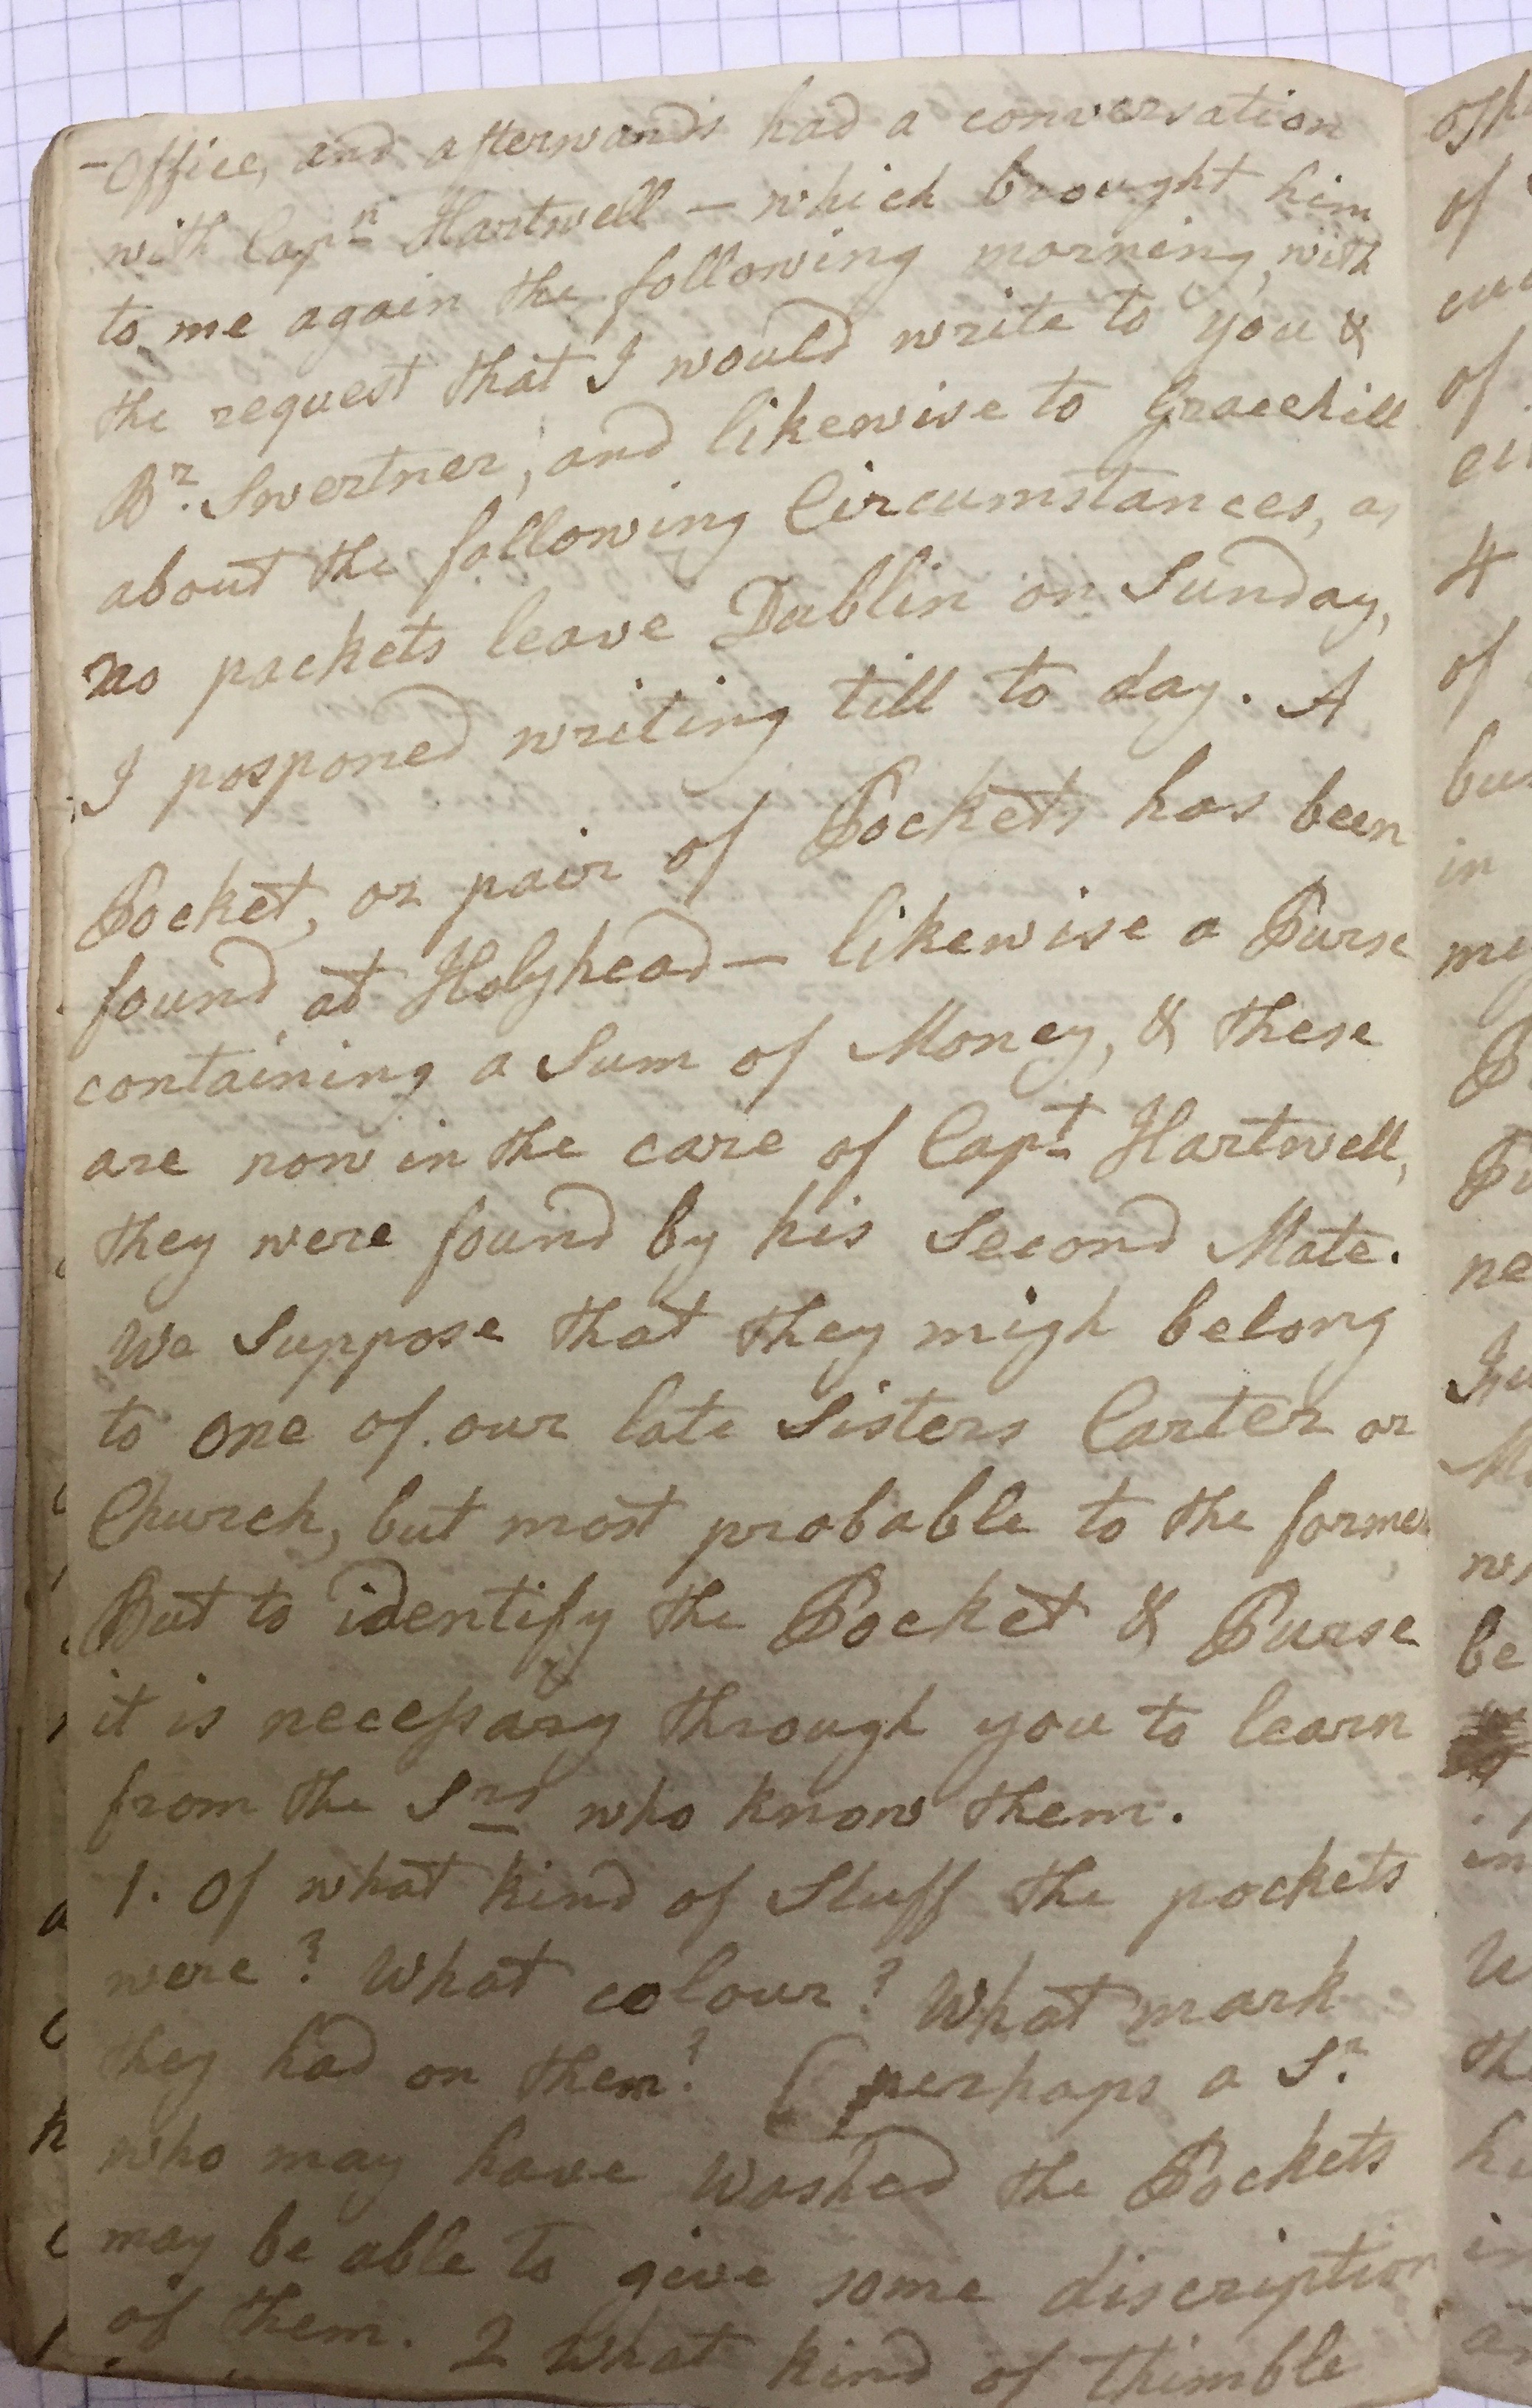 -Office, and afterwards had a conversation
with Capn Hartwell — which brought him
to me again the following morning, with
the request that I would write to you &
Br. Swertner, and likewise to Gracehill
about the following Circumstances, as
no packets leave Dublin on Sunday,
I posponed writing till to day. A
Pocket, or pair of Pockets has been
found at Holyhead — likewise a Purse
containing a Sum of Money, & these
are now in the care of Capt Hartwell,
they were found by his Second Mate.
We Suppose that they migh belong
to one of our late Sisters Carter or
Church, but most probable to the former
But to identify the Pocket & Purse
it is necessary through you to learn
from the Srs who know them.
1. Of what kind of Stuff the pockets
were? What colour? What mark
they had on them? (perhaps a Sr.
who may have washed the Pockets
may be able to give some discription
of them. 2 What kind of thimble